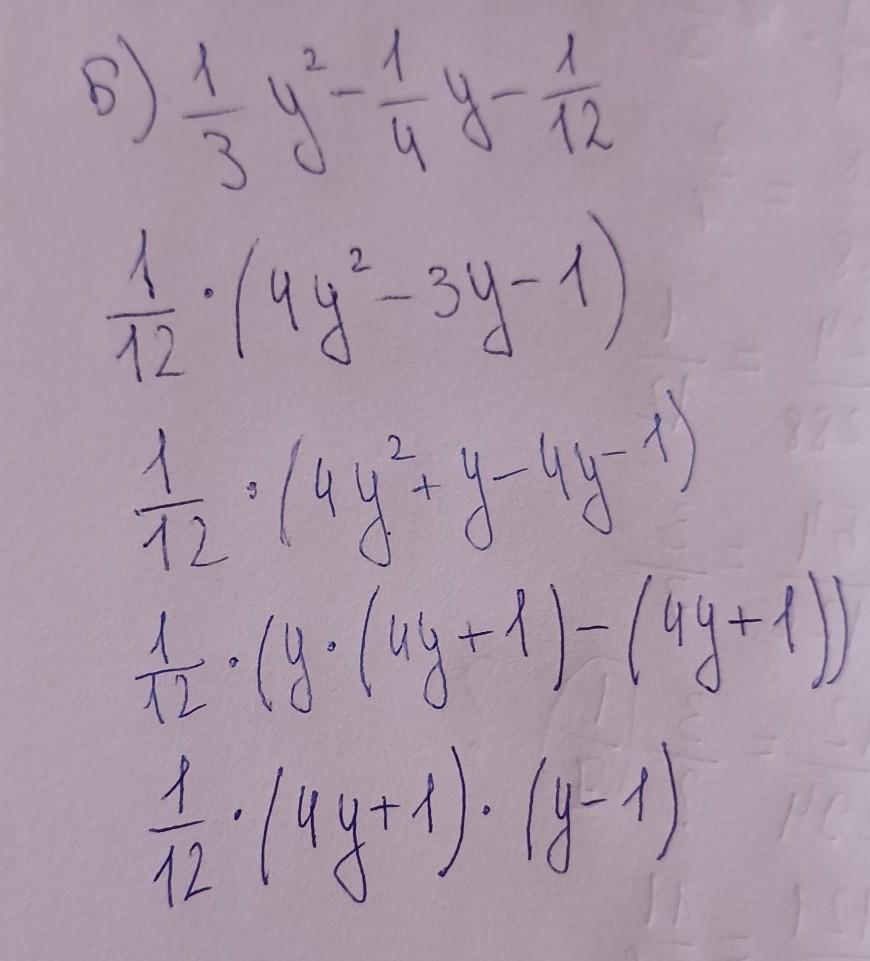 Б) 1/3 y² - 1/4 y - 1/12
1/12 · (4y² - 3y - 1)
1/12 · (4y² + y - 4y - 1)
1/12 · (y · (4y + 1) - (4y + 1))
1/12 · (4y + 1) · (y - 1)